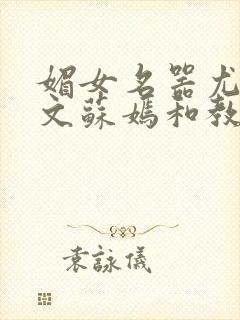 媚女名器尤
文蘇媽和教
袁詠儀